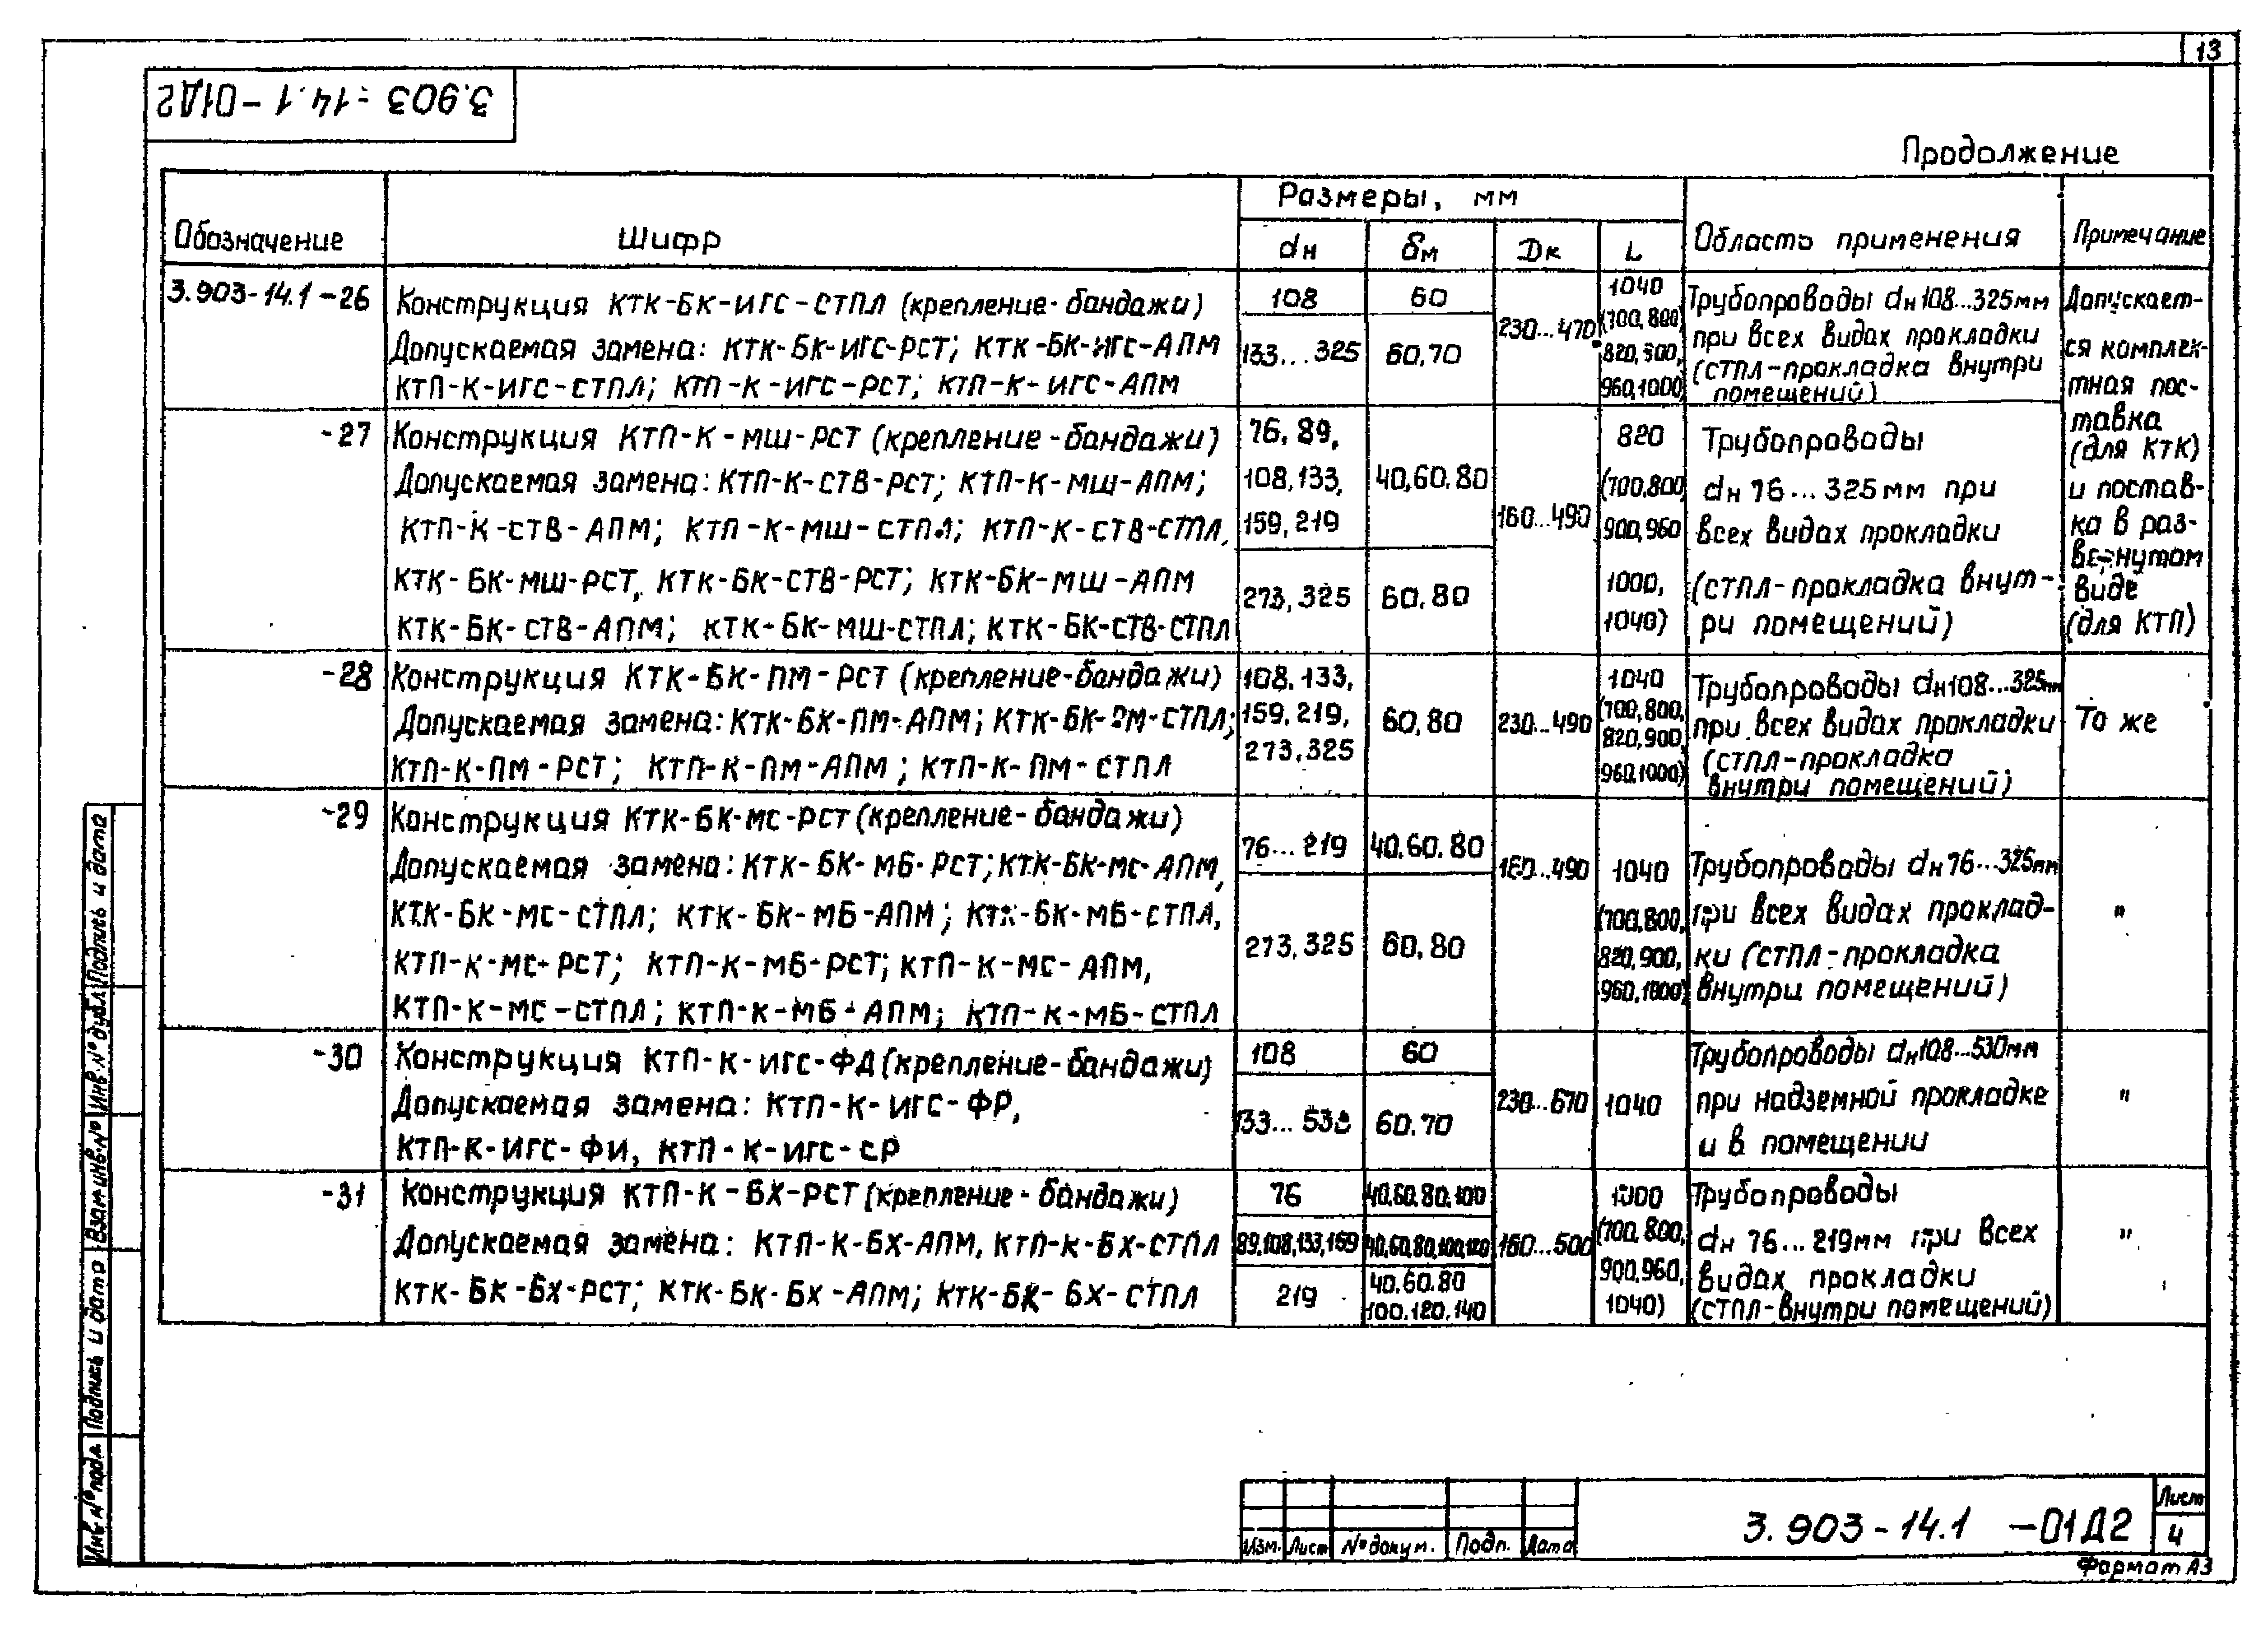 13
3.903-14.1-01Д2
Продолжение
Обозначение
Шифр
Размеры, мм
dн
δм
Dк
L
Область применения
Примечание
3.903-14.1-26
Конструкция КТК-БК-ИГС-СТПЛ (крепление-бандажи)
Допускаемая замена: КТК-БК-ИГС-РСТ; КТК-БК-ИГС-АПМ
КТП-К-ИГС-СТПЛ; КТП-К-ИГС-РСТ; КТП-К-ИГС-АПМ
108
60
133...325
60,70
230...470
1040
(700,800,
820,900,
960,1000)
Трубопроводы dн108...325мм
при всех видах прокладки
(СТПЛ-прокладка внутри
помещений)
Допускает-
ся комплек-
тная пос-
тавка
(для КТК)
и постав-
ка в раз-
вернутом
виде
(для КТП)
-27
Конструкция КТП-К-МШ-РСТ (крепление-бандажи)
Допускаемая замена: КТП-К-СТВ-РСТ; КТП-К-МШ-АПМ;
КТП-К-СТВ-АПМ; КТП-К-МШ-СТПЛ; КТП-К-СТВ-СТПЛ,
КТК-БК-МШ-РСТ, КТК-БК-СТВ-РСТ; КТК-БК-МШ-АПМ
КТК-БК-СТВ-АПМ; КТК-БК-МШ-СТПЛ; КТК-БК-СТВ-СТПЛ
76, 89,
108,133,
159,219
40,60,80
273,325
60,80
160...490
820
(700,800
900,960
1000,
1040)
Трубопроводы
dн 76...325мм при
всех видах прокладки
(СТПЛ-прокладка внут-
ри помещений)
-28
Конструкция КТК-БК-ПМ-РСТ (крепление-бандажи)
Допускаемая замена: КТК-БК-ПМ-АПМ; КТК-БК-ПМ-СТПЛ;
КТП-К-ПМ-РСТ; КТП-К-ПМ-АПМ; КТП-К-ПМ-СТПЛ
108,133,
159,219,
273,325
60,80
230...490
1040
(700,800,
820,900,
960,1000)
Трубопроводы dн108...325мм
при всех видах прокладки
(СТПЛ-прокладка
внутри помещений)
То же
-29
Конструкция КТК-БК-МС-РСТ (крепление-бандажи)
Допускаемая замена: КТК-БК-МБ-РСТ; КТК-БК-МС-АПМ,
КТК-БК-МС-СТПЛ; КТК-БК-МБ-АПМ; КТК-БК-МБ-СТПЛ,
КТП-К-МС-РСТ; КТП-К-МБ-РСТ; КТП-К-МС-АПМ,
КТП-К-МС-СТПЛ; КТП-К-МБ-АПМ; КТП-К-МБ-СТПЛ
76...219
40.60.80
273,325
60,80
160...490
1040
(700,800,
820,900,
960,1000)
Трубопроводы dн76...325мм
при всех видах проклад-
ки (СТПЛ-прокладка
внутри помещений)
"
-30
Конструкция КТП-К-ИГС-ФД (крепление-бандажи)
Допускаемая замена: КТП-К-ИГС-ФР,
КТП-К-ИГС-ФИ, КТП-К-ИГС-СР
108
60
133...530
60.70
230...670
1040
Трубопроводы dн108...530мм
при надземной прокладке
и в помещении
"
-31
Конструкция КТП-К-БХ-РСТ (крепление-бандажи)
Допускаемая замена: КТП-К-БХ-АПМ, КТП-К-БХ-СТПЛ
КТК-БК-БХ-РСТ; КТК-БК-БХ-АПМ; КТК-БК-БХ-СТПЛ
76
40,60,80,100
89,108,133,159
40,60,80,100,120
219
40.60.80
100.120.140
160...500
1000
(700,800,
900,960,
1040)
Трубопроводы
dн 76...219мм при всех
видах прокладки
(СТПЛ-внутри помещений)
"
Инв.№подл.
Подпись и дата
Взам.инв.№
Инв.№дубл.
Подпись и дата
Изм.
Лист
№докум.
Подп.
Дата
3.903-14.1 -01Д2
Лист
4
Формат А3